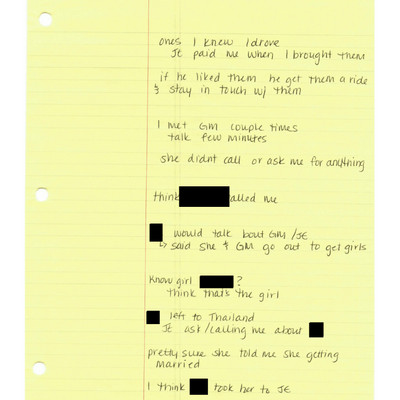 ones I knew I drove
JE paid me when I brought them
if he liked them he get them a ride
& stay in touch w/ them
I met GM couple times
talk few minutes
she didnt call or ask me for anything
think called me
would talk bout GM/JE
↳ said she & GM go out to get girls
know girl ?
think that's the girl
left to Thailand
JE ask/calling me about
pretty sure she told me she getting
married
I think took her to JE